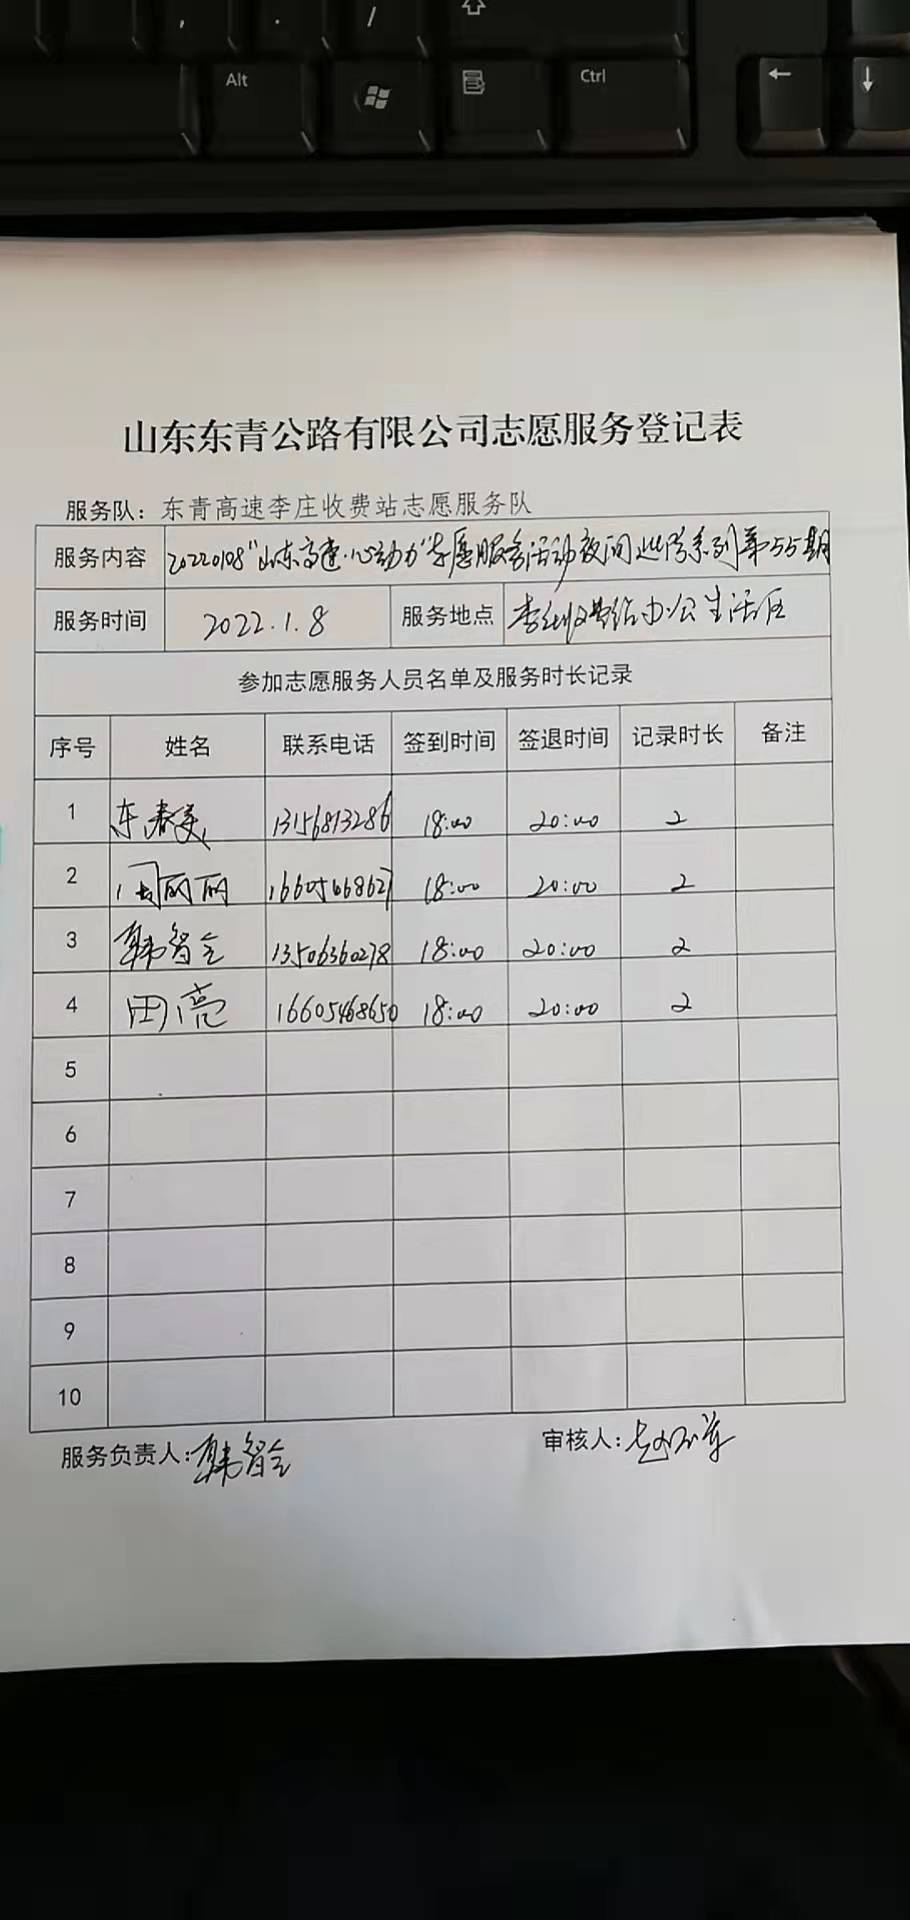 ,
.
/
Alt
Ctrl
山东东青公路有限公司志愿服务登记表
服务队：东青高速李庄收费站志愿服务队
服务内容 20220108"山东高速·心动力"志愿服务活动夜间巡防系列第55期
服务时间 2022.1.8 服务地点 李庄收费站办公生活区
参加志愿服务人员名单及服务时长记录
序号 姓名 联系电话 签到时间 签退时间 记录时长 备注
1 东春美 13156813286 18:00 20:00 2
2 周丽丽 16605468627 18:00 20:00 2
3 韩智全 13506360278 18:00 20:00 2
4 田亮 16605468650 18:00 20:00 2
5
6
7
8
9
10
服务负责人：韩智全 审核人：